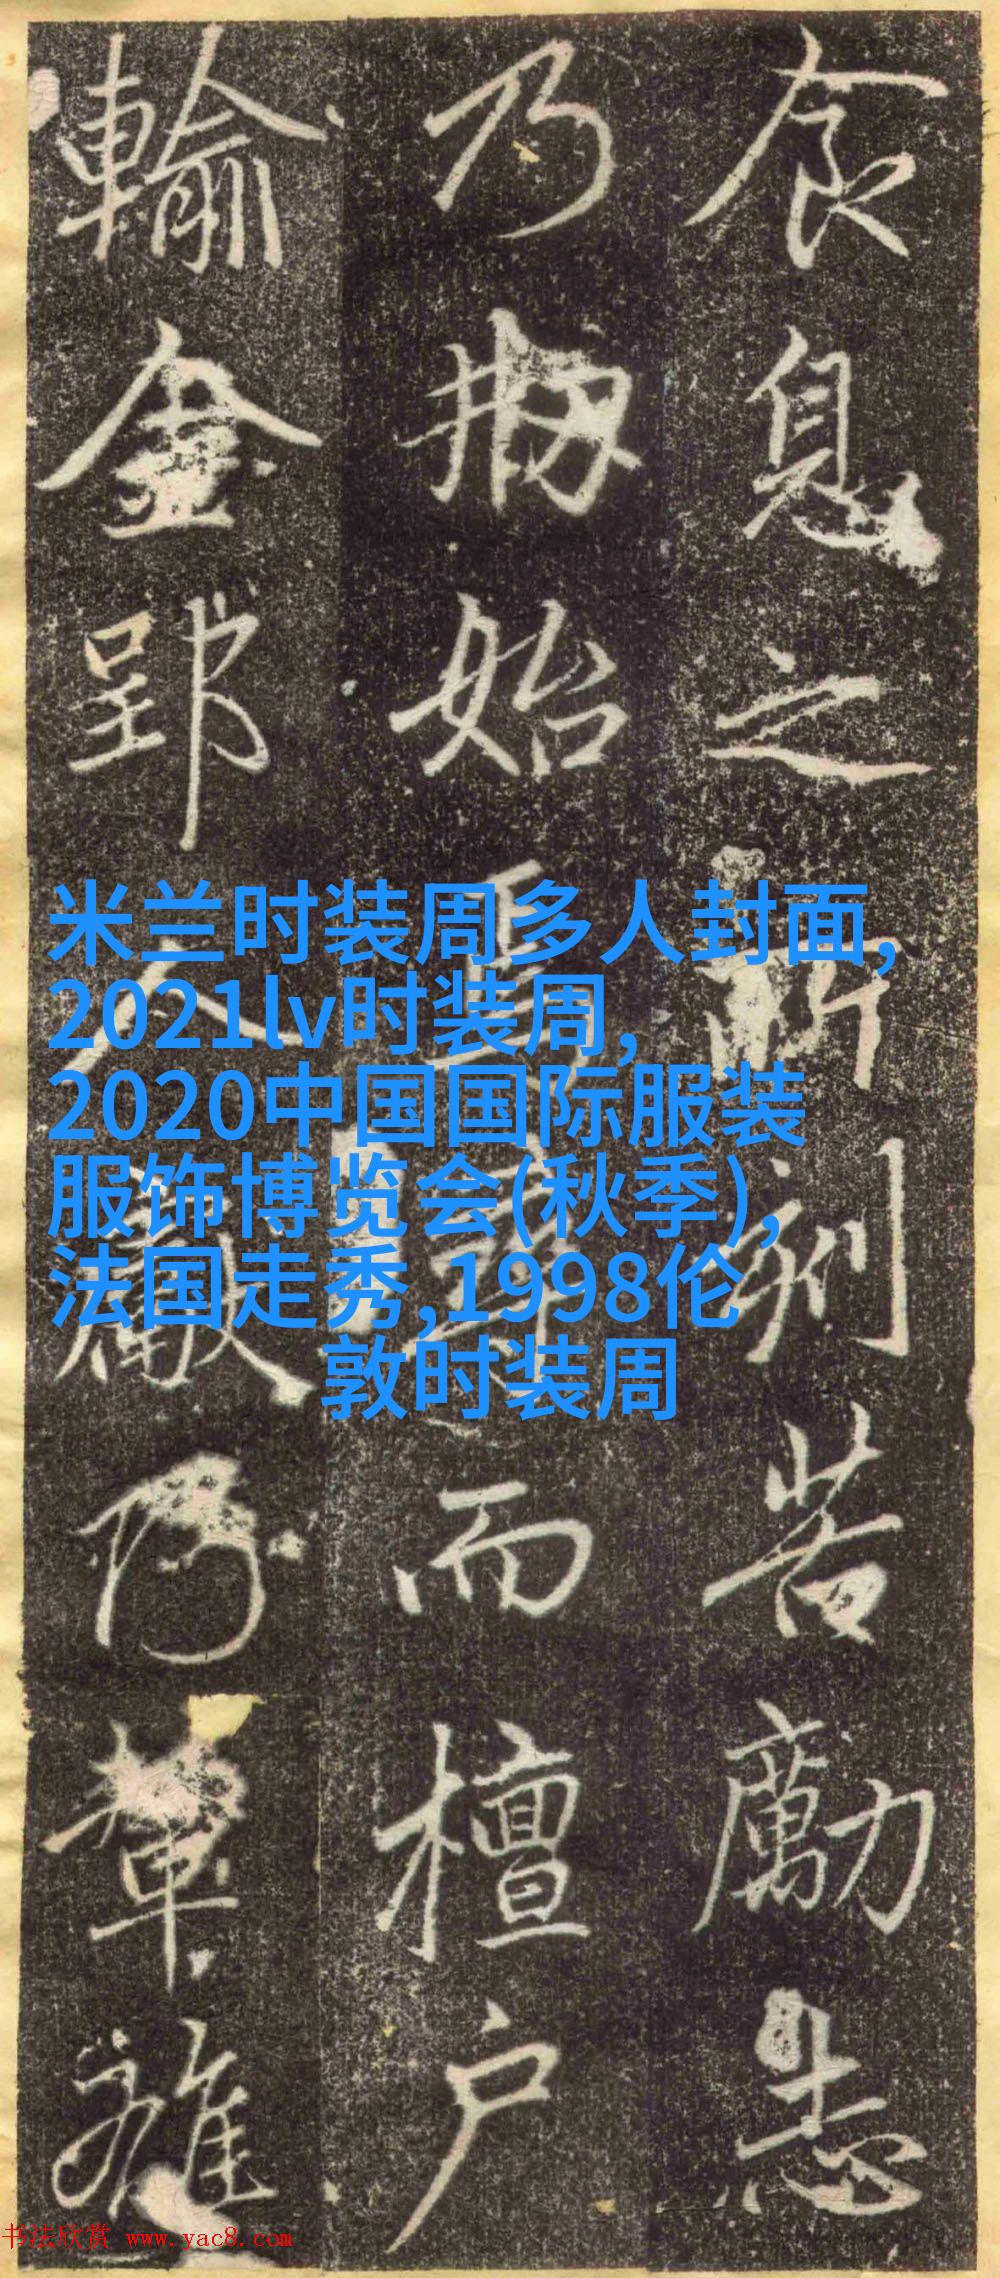 食息之所刻苦勵志
乃始焉而檀户
輸金郢人輦雖
米兰时装周多人封面,
2021lv时装周,
2020中国国际服装
服饰博览会(秋季),
法国走秀,1998伦
敦时装周
书法欣赏 www.yac8.com